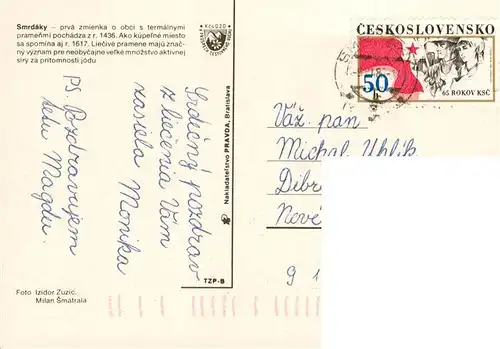 Smrdáky – prvá zmienka o obci s termálnymi
prameňmi pochádza z r. 1436. Ako kúpeľné miesto
sa spomína aj r. 1617. Liečivé pramene majú znač-
ný význam pre neobyčajne veľké množstvo aktívnej
síry za prítomnosti jódu
Kčs 0,20
Srdečný pozdrav
z liečenia Vám
zasiela Monika
PS. Pozdravujem
tetu Magdu.
Foto Izidor Zuzic,
Milan Šmatrala
Nakladateľstvo PRAVDA, Bratislava
TZP-B
ČESKOSLOVENSKO
50
h
65 ROKOV KSČ
Váž. pan
Michal Uhlík
Nové
9 1